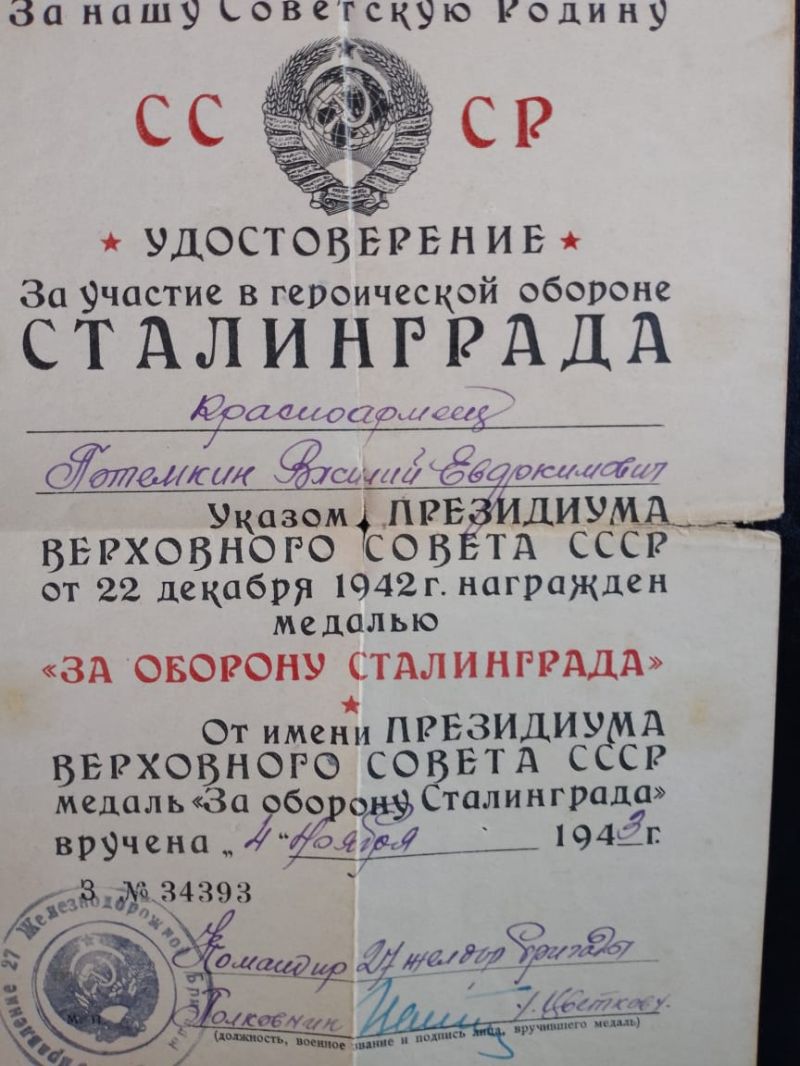 За нашу Советскую Родину
СССР
★ УДОСТОВЕРЕНИЕ ★
За участие в героической обороне
СТАЛИНГРАДА
Красноармеец
Потемкин Василий Евдокимович
Указом ПРЕЗИДИУМА
ВЕРХОВНОГО СОВЕТА СССР
от 22 декабря 1942 г. награжден
медалью
«ЗА ОБОРОНУ СТАЛИНГРАДА»
★
От имени ПРЕЗИДИУМА
ВЕРХОВНОГО СОВЕТА СССР
медаль «За оборону Сталинграда»
вручена „4“ Ноября 1943 г.
З № 34393
Управление 27 Железнодорожной
Командир 27 желдор бригады
М. П.
Полковник /Цветков/.
(должность, военное звание и подпись лица, вручившего медаль)